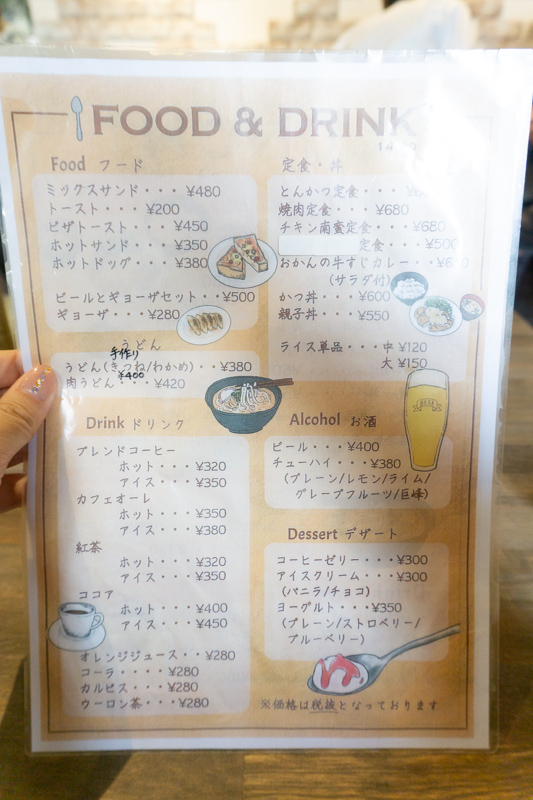 FOOD & DRINK
Food フード
ミックスサンド・・・¥480
トースト・・・¥200
ピザトースト・・・¥450
ホットサンド・・・¥350
ホットドッグ・・・¥380
ビールとギョーザセット・・¥500
ギョーザ・・・¥280
うどん
手作り
うどん(きつね/わかめ)・・¥380
¥400
肉うどん・・・¥420
Drink ドリンク
ブレンドコーヒー
ホット・・・¥320
アイス・・・¥350
カフェオーレ
ホット・・・¥350
アイス・・・¥380
紅茶
ホット・・・¥320
アイス・・・¥350
ココア
ホット・・・¥400
アイス・・・¥450
オレンジジュース・・¥280
コーラ・・・・¥280
カルピス・・・¥280
ウーロン茶・・・¥280
定食・丼
とんかつ定食・・・
焼肉定食・・・¥680
チキン南蛮定食・・・¥680
定食・・・¥500
おかんの牛すじカレー・・
(サラダ付)
かつ丼・・・¥600
親子丼・・・¥550
ライス単品・・・中 ¥120
大 ¥150
Alcohol お酒
ビール・・・¥400
チューハイ・・・¥380
(プレーン/レモン/ライム/
グレープフルーツ/巨峰)
Dessert デザート
コーヒーゼリー・・・¥300
アイスクリーム・・・¥300
(バニラ/チョコ)
ヨーグルト・・・¥350
(プレーン/ストロベリー/
ブルーベリー)
※価格は税抜となっております